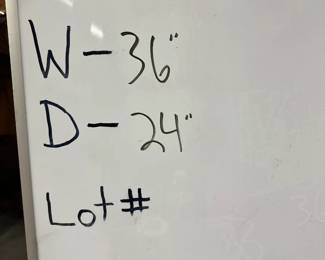 W - 36"
D - 24"
Lot #